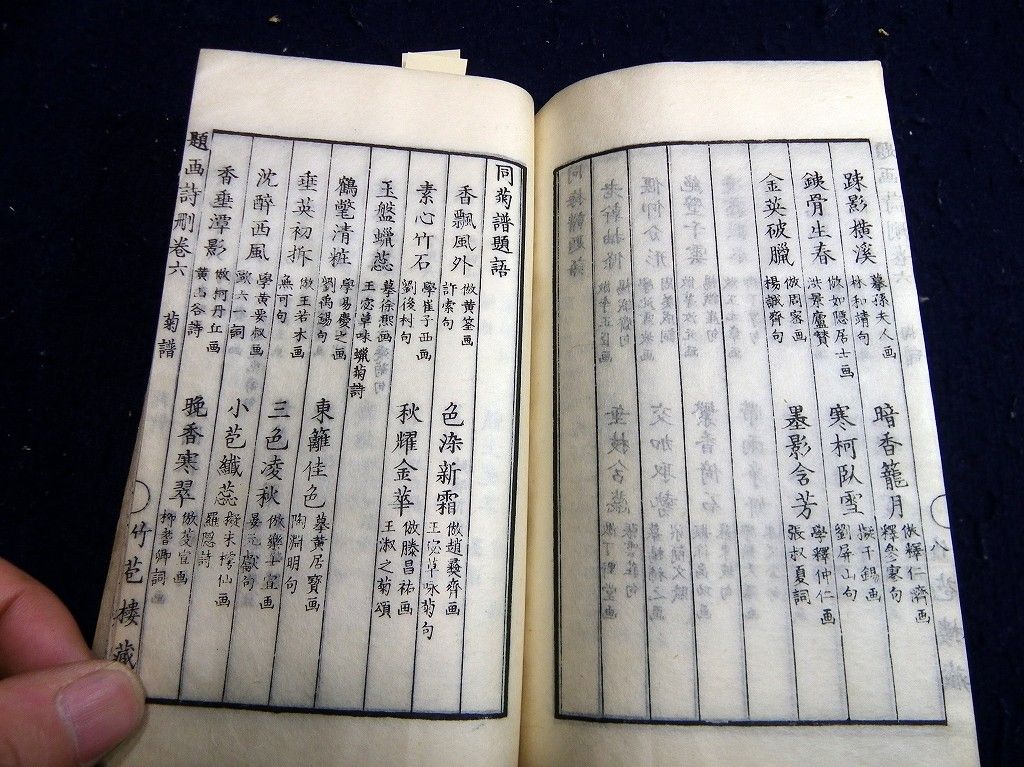 踈影橫溪
摹孫夫人画
林和靖句
暗香籠月
倣釋仁濟画
釋參寥句
銕骨生春
倣如隱居士画
洪景盧贊
寒柯臥雪
擬干錫画
劉屏山句
金英破臘
倣周密画
楊誠齊句
墨影含芳
學釋仲仁画
張叔夏詞
同菊譜題語
香飄風外
倣黄筌画
許索句
色染新霜
倣趙彞齊画
王宓草咏菊句
素心竹石
學崔子西画
劉後村句
秋耀金華
倣滕昌祐画
王淑之菊頌
玉盤蠟蕊
摹徐熙画
王宓草咏蠟菊詩
鶴氅清粧
學易慶之画
劉禹錫句
東籬佳色
摹黄居寳画
陶淵明句
垂英初拆
倣王若水画
無可句
三色凌秋
倣樂士宣画
晏元獻句
沈醉西風
歐六一詞
小苞纖蕊
擬朱樗仙画
羅隱詩
香垂潭影
倣柯丹丘画
黄山谷詩
晩香寒翠
柳耆卿詞
題画詩刪卷六 菊譜 竹苞樓藏